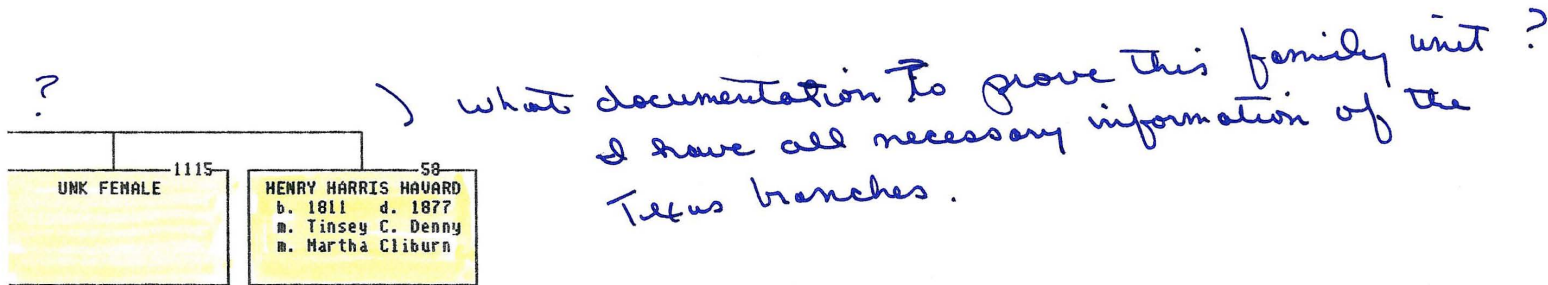 ? ) what documentation to prove this family unit ?
I have all necessary information of the
Texas branches.
1115
UNK FEMALE
58
HENRY HARRIS HAVARD
b. 1811 d. 1877
m. Tinsey C. Denny
m. Martha Cliburn